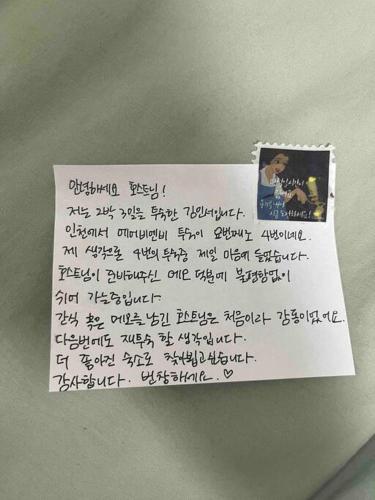 안녕하세요 호스트님!
저는 2박 3일을 투숙한 김인서입니다.
인천에서 에어비엔비 투숙이 요번째로 4번이네요.
제 생각으론 4번의 투숙중 제일 마음에 들었습니다.
호스트님이 준비해주신 메모 덕분에 불편함없이
쉬어 가는중입니다.
간식 혹은 메모를 남긴 호스트님은 처음이라 감동이었어요.
다음번에도 재투숙 할 생각입니다.
더 좋아진 숙소로 찾아뵙고싶습니다.
감사합니다. 번창하세요. ♡